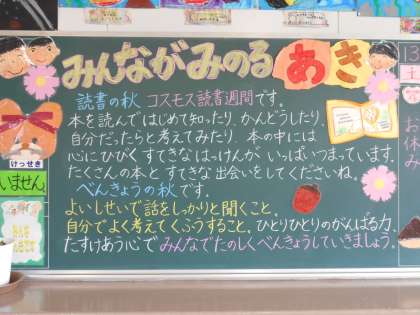 みんながみのるあき
読書の秋 コスモス読書週間です。
本を読んではじめて知ったり、かんどうしたり、
自分だったらと考えてみたり、本の中には
心にひびくすてきなはっけんがいっぱいつまっています。
たくさんの本とすてきな出会いをしてくださいね。
べんきょうの秋です。
よいしせいで話をしっかりと聞くこと。
自分でよく考えてくふうすること。ひとりひとりのがんばる力。
たすけあう心でみんなでたのしくべんきょうしていきましょう。
けっせき
いません。
13
お休み